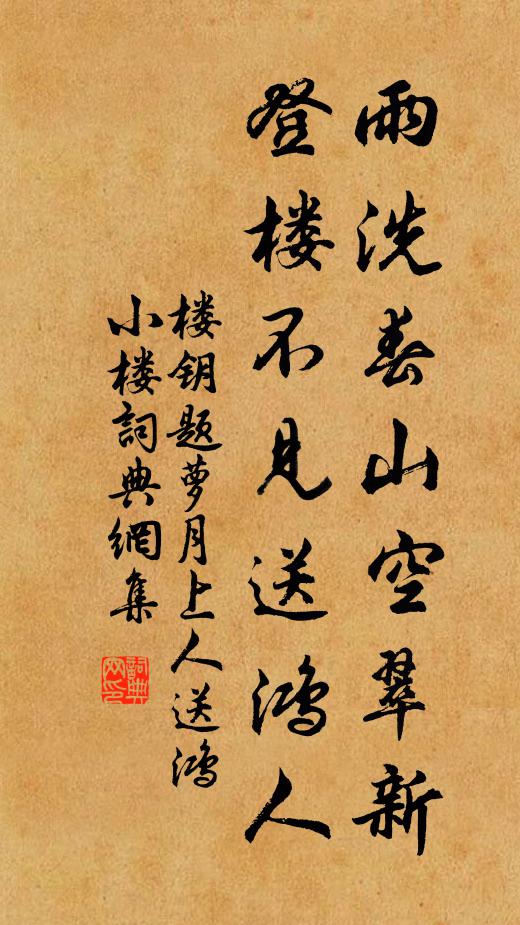 雨洗春山空翠新
登楼不见送鸿人
楼钥题萝月上人送鸿
小楼詞典網集
詞典
网印